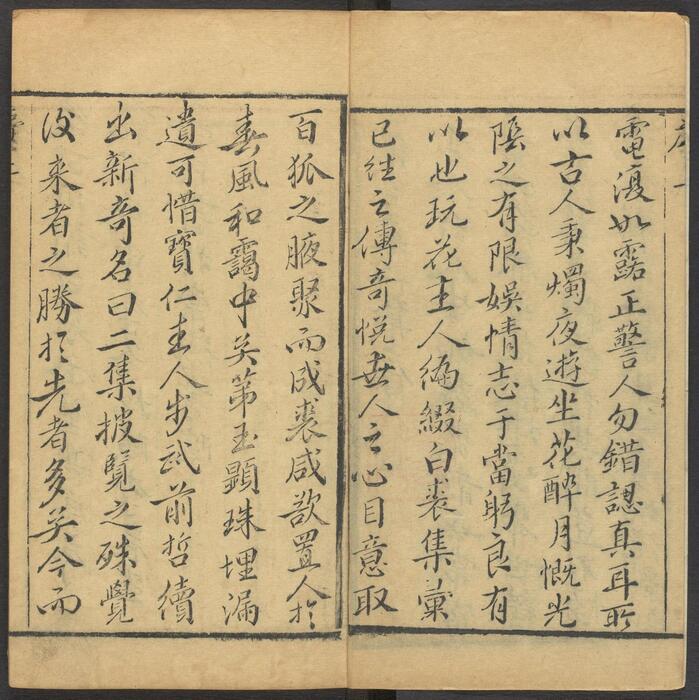 電復如露正警人勿錯認真耳所
以古人秉燭夜遊坐花醉月慨光
陰之有限娛情志于當躬良有
以也玩花主人編綴白裘集彙
已往之傳奇悅世人之心目意取
百狐之腋聚而成裘咸欲置人扵
春風和靄中矣第玉顯珠埋漏
遺可惜寶仁主人步武前哲續
出新奇名曰二集披覽之殊覺
後来者之勝扵先者多矣今而